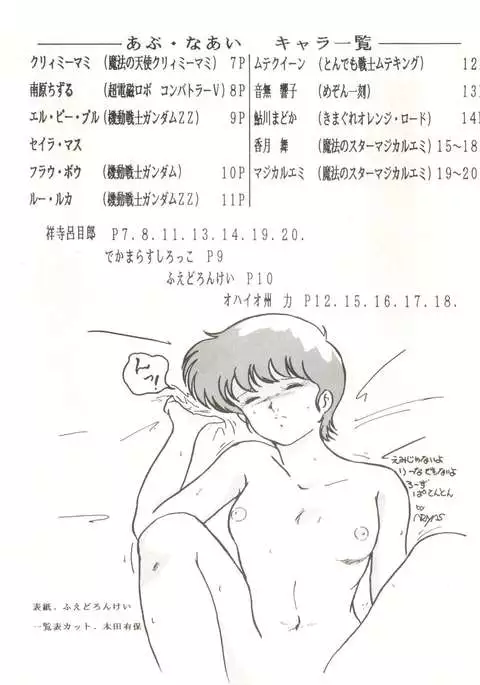 あぶ・なあい キャラ一覧
クリィミーマミ (魔法の天使クリィミーマミ) 7P
南原ちずる (超電磁ロボ コンバトラーV) 8P
エル・ピー・プル (機動戦士ガンダムZZ) 9P
セイラ・マス
フラウ・ボウ (機動戦士ガンダム) 10P
ルー・ルカ (機動戦士ガンダムZZ) 11P
ムテクイーン (とんでも戦士ムテキング) 12
音無 響子 (めぞん一刻) 13
鮎川まどか (きまぐれオレンジ・ロード) 14
香月 舞 (魔法のスターマジカルエミ) 15~18
マジカルエミ (魔法のスターマジカルエミ) 19~20
祥寺呂目郎 P7.8.11.13.14.19.20.
でかまらすしろっこ P9
ふえどろんけい P10
オハイオ州 力 P12.15.16.17.18.
んっ!
えみじゃないよ
りーなでもないよ
ろーず
ぱてんとん
表紙、ふえどろんけい
一覧表カット、本田有保